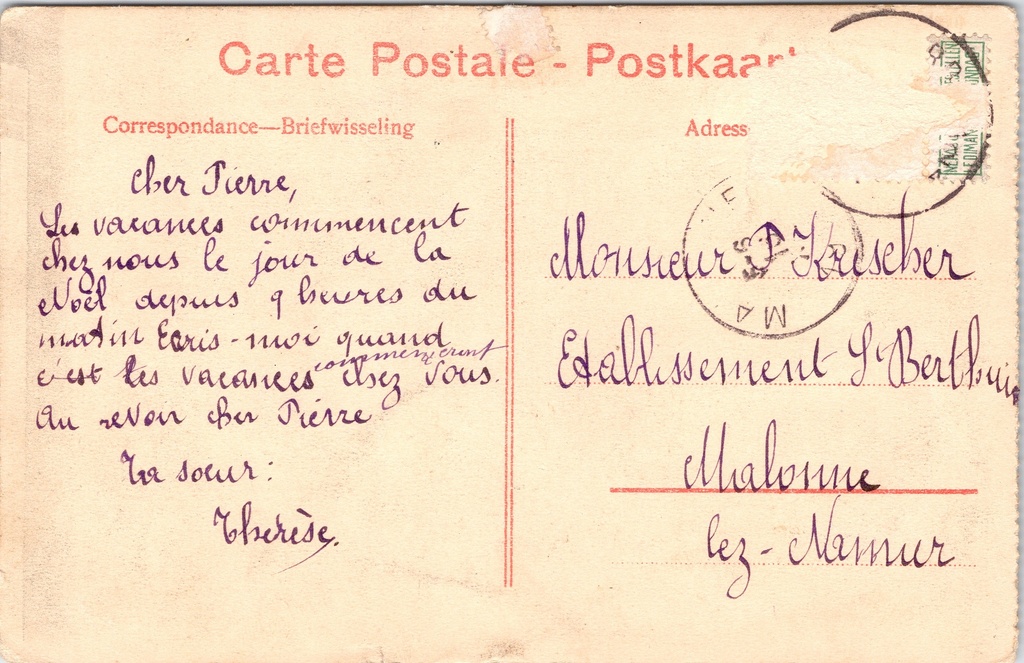 Carte Postale - Postkaar
Correspondance—Briefwisseling
Adress
Cher Pierre,
Les vacances commencent
chez nous le jour de la
Noël depuis 9 heures du
matin Ecris-moi quand
commenceront
c'est les vacances chez vous.
Au revoir cher Pierre
Ta soeur:
Therèse.
Monsieur P Krescher
Etablissement St Berthuin
Malonne
lez-Namur
MA